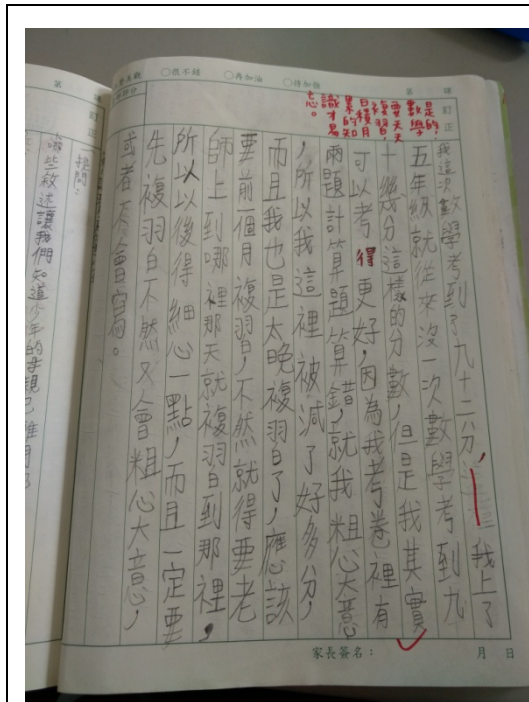 第 課
訂正
○很不錯 ○再加油 ○待加強
是的，
數學
要天天
複習，
日積月
累的知
識才易
忘。
我這次數學考到了九十六分，我上了
五年級就從來沒一次數學考到九
十幾分這樣的分數，但是我其實
可以考得更好，因為我考卷裡有
兩題計算題算錯，就我粗心大意
，所以我這裡被減了好多分，
而且我也是太晚複習了，應該
要前一個月複習，不然就得要老
師上到哪裡那天就複習到那裡，
所以以後得細心一點，而且一定要
先複習不然又會粗心大意，
或者不會寫。
家長簽名： 月 日
第 課
訂正
提問：
哪些敘述讓我們知道少年的母親已離